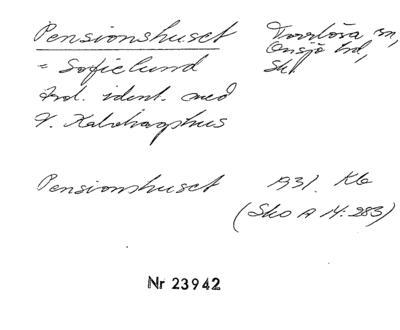 Pensionshuset Torrlösa sn,
Onsjö hd,
= Sofielund Sk
ind. ident. med
V. Kalvhaghus
Pensionshuset 1931. Kb
(Sko A 14:283)
Nr 23942